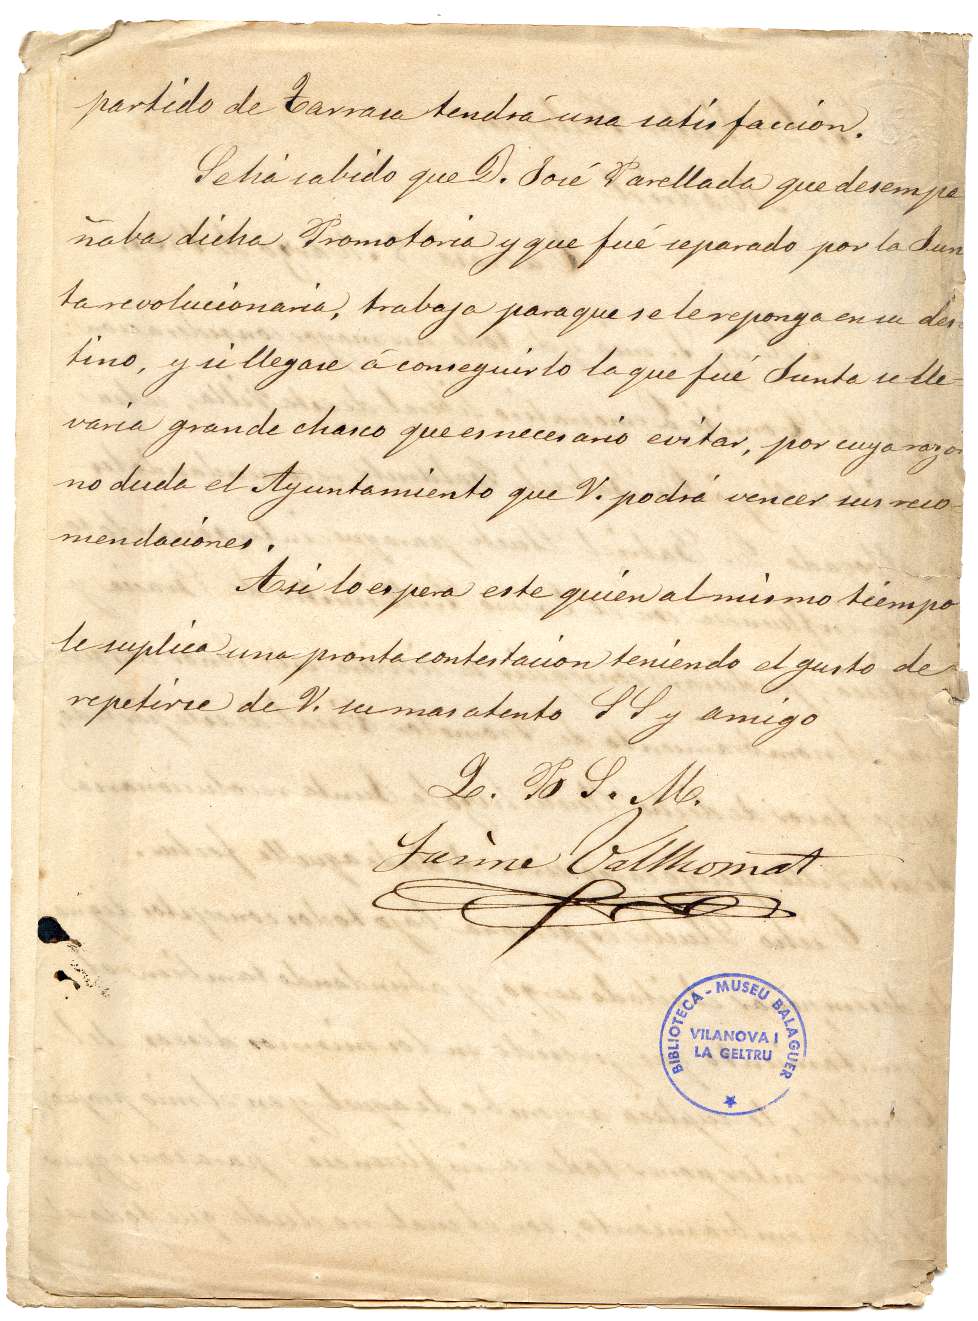 partido de Tarrasa tendrá una satisfacción.
Se há sabido que D. José Parellada que desempe
ñaba dicha Promotoria y que fué separado por la Jun
ta revolucionaria, trabaja para que se le reponga en su des
tino, y si llegase á conseguirlo la que fué Junta se lle-
varia grande chasco que es necesario evitar, por cuya razon
no duda el Ayuntamiento que V. podrá vencer sus reco-
mendaciones.
Asi lo espera este quien al mismo tiempo
le suplica una pronta contestacion teniendo el gusto de
repetirse de V. su mas atento S S y amigo
Q. B S. M.
Jaime Vallhonrat
BIBLIOTECA - MUSEU BALAGUER
VILANOVA I
LA GELTRU